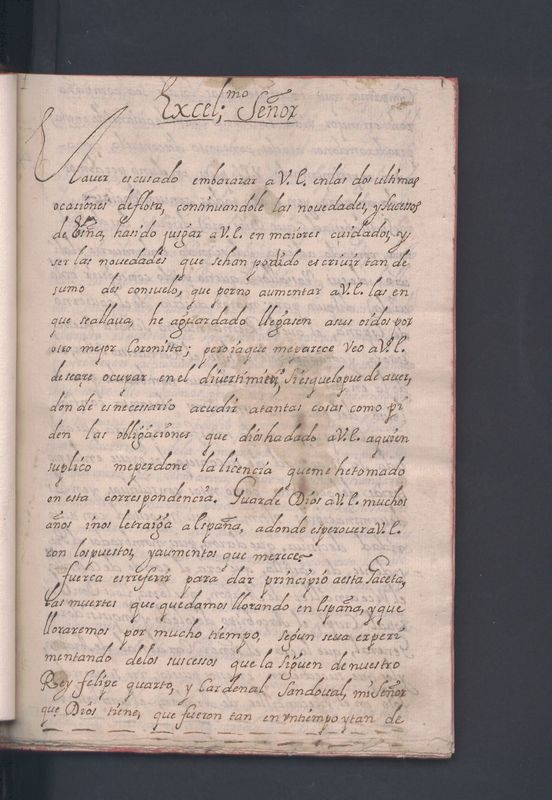 Excel;mo Señor
Hauer escusado embarazar a V. E. en las dos ultimas
ocaciones de flota, continuandole las novedades, y Sucessos
de España, ha sido jusgar a V. E. en maiores cuidados, y
ser las novedades que se han podido escrivir tan de
sumo desconsuelo, que por no aumentar a V. E. las en
que se allaua, he aguardado llegasen a sus oidos por
otro mejor Coronista; pero ia que me parece veo a V. E.
desear ocupar en el divertimieto, si es que lo puede auer,
donde es necessario acudir a tantas cosas como pi
den las obligaciones que dios ha dado a V. E. a quien
suplico me perdone la licencia que me he tomado
en esta correspondencia. Guarde Dios a V. E. muchos
años i nos le traiga a España, adonde espero ver a V. E.
con los puestos, y aumentos que merece.
fuerca es referir para dar principio a esta Gaceta,
las muertes que quedamos llorando en España, y que
lloraremos por mucho tiempo, segun se va experi
mentando de los sucessos que la siguen de nuestro
Rey felipe quarto, y Cardenal Sandoual, mi Señor
que Dios tiene, que fueron tan en vn tiempo y tan de